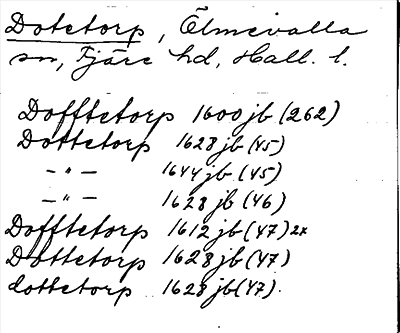 Dotetorp, Ölmevalla
sn, Fjäre hd, Hall. l.
Dofftetorp 1600 jb (262)
Dottetorp 1628 jb (45)
- " - 1644 jb (45)
- " - 1628 jb (46)
Dofftetorp 1612 jb (47) 2x
Dottetorp 1628 jb (47)
dottetorp 1628 jb (47).